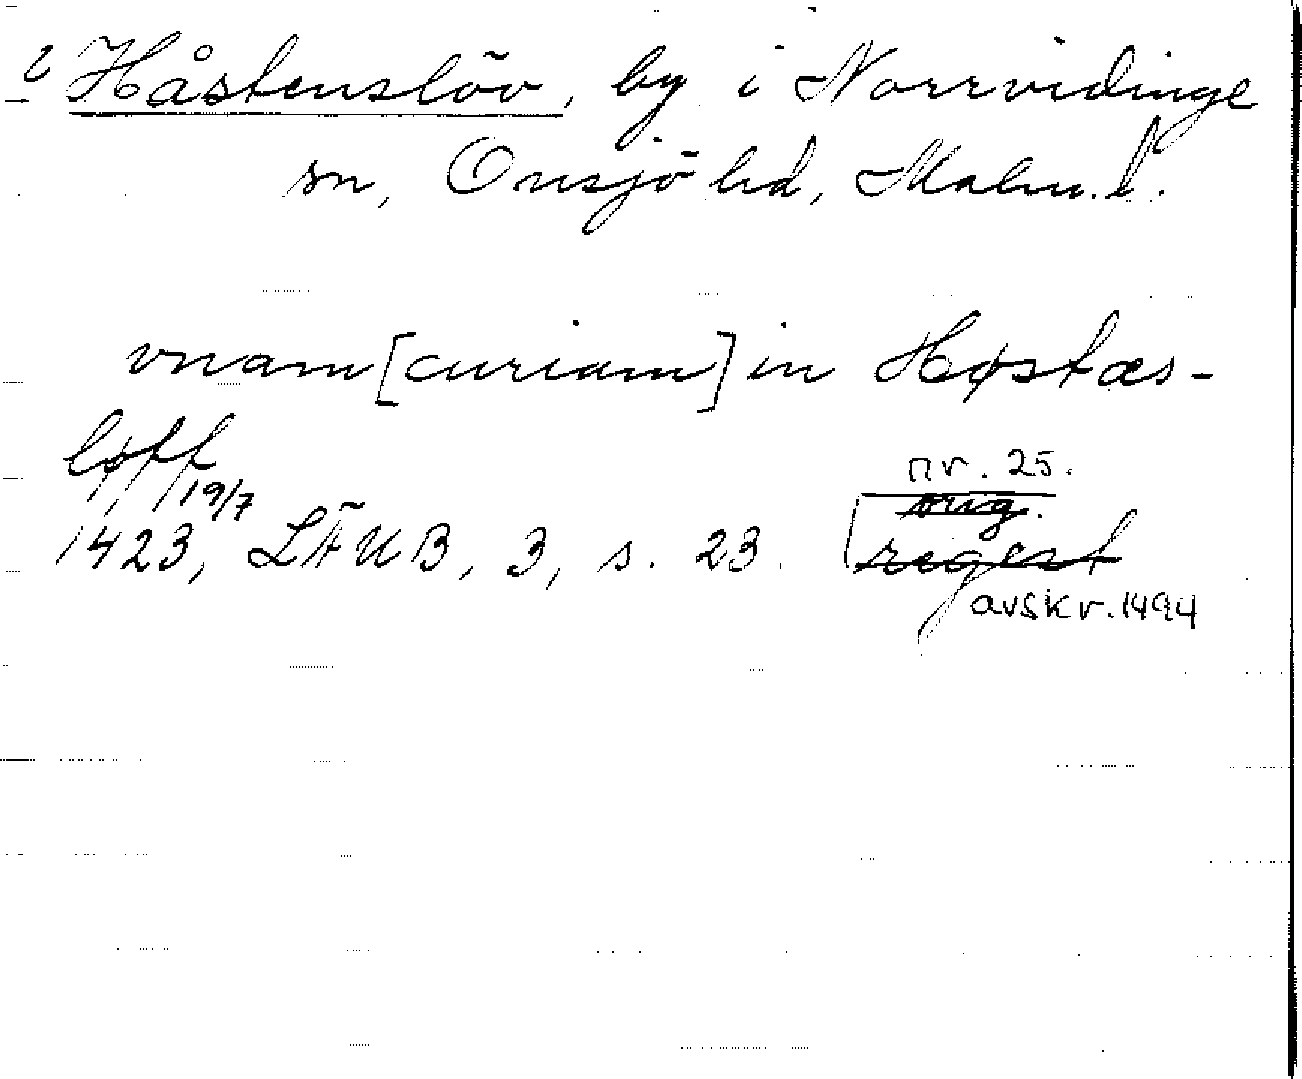 Håstenslöv, by i Norrvidinge
sn, Onsjö hd, Malm. l.
vnam [curiam] in Høstæs-
løff
19/7
nr. 25.
orig.
1423, LÄUB, 3, s. 23. regest
avskr. 1494